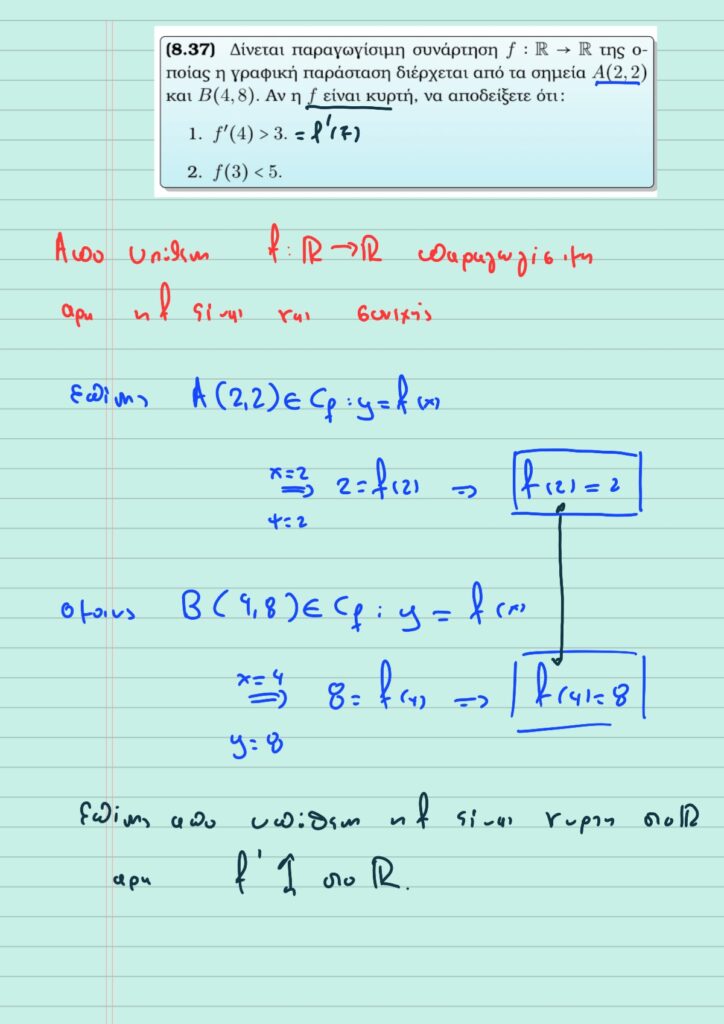 (8.37) Δίνεται παραγωγίσιμη συνάρτηση f : ℝ → ℝ της ο-
ποίας η γραφική παράσταση διέρχεται από τα σημεία A(2,2)
και B(4,8). Αν η f είναι κυρτή, να αποδείξετε ότι:
1. f′(4) > 3. = f'(ξ)
2. f(3) < 5.
Απο υπόθεση f: ℝ → ℝ παραγωγίσιμη
αρα η f είναι και συνεχής
Επίσης A(2,2) ∈ Cf : y = f(x)
x=2
⟹ 2 = f(2) ⇒ f(2) = 2
y=2
ομοιως B(4,8) ∈ Cf : y = f(x)
x=4
⟹ 8 = f(4) ⇒ f(4) = 8
y=8
Επίσης απο υπόθεση η f είναι κυρτη στο ℝ
αρα f' ↑ στο ℝ.